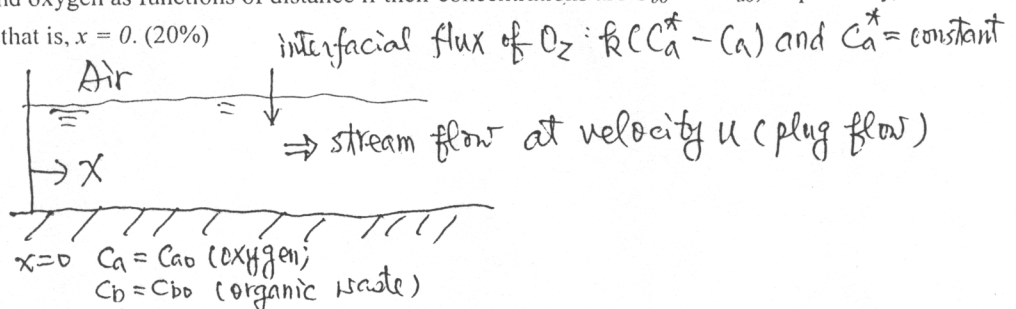 that is, x = 0. (20%)
interfacial flux of O₂ : k(Ca* - Ca) and Ca* = constant
Air
⇒ stream flow at velocity u (plug flow)
→ x
x=0 Ca = Cao (oxygen)
Cb = Cbo (organic waste)